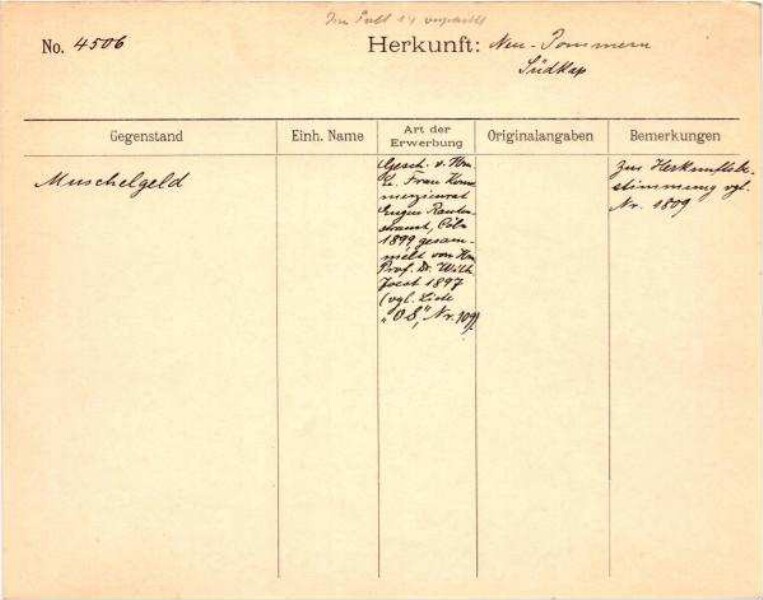 No. 4506
Herkunft: Neu-Pommern
Südkap
Gegenstand
Einh. Name
Art der
Erwerbung
Originalangaben
Bemerkungen
Muschelgeld
Gesch. v. Hrn
u. Frau Kom
merzienrat
Eugen Rauten
strauch, Cöln
1899, gesam-
melt von Hrn
Prof. Dr. Wilh.
Joest 1897
(vgl. Liste
„OS," Nr. 109)
Zur Herkunftsbe-
stimmung vgl.
Nr. 1809